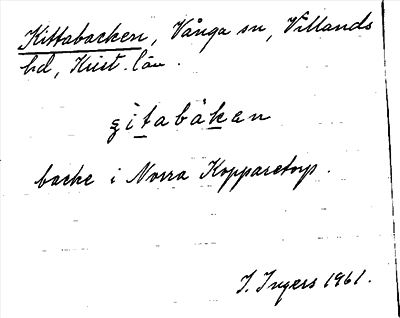 Kittabacken, Vånga sn, Villands
hd, Krist. län.
ʒitabàkan
backe i Norra Kopparetorp.
I. Ingers 1961.